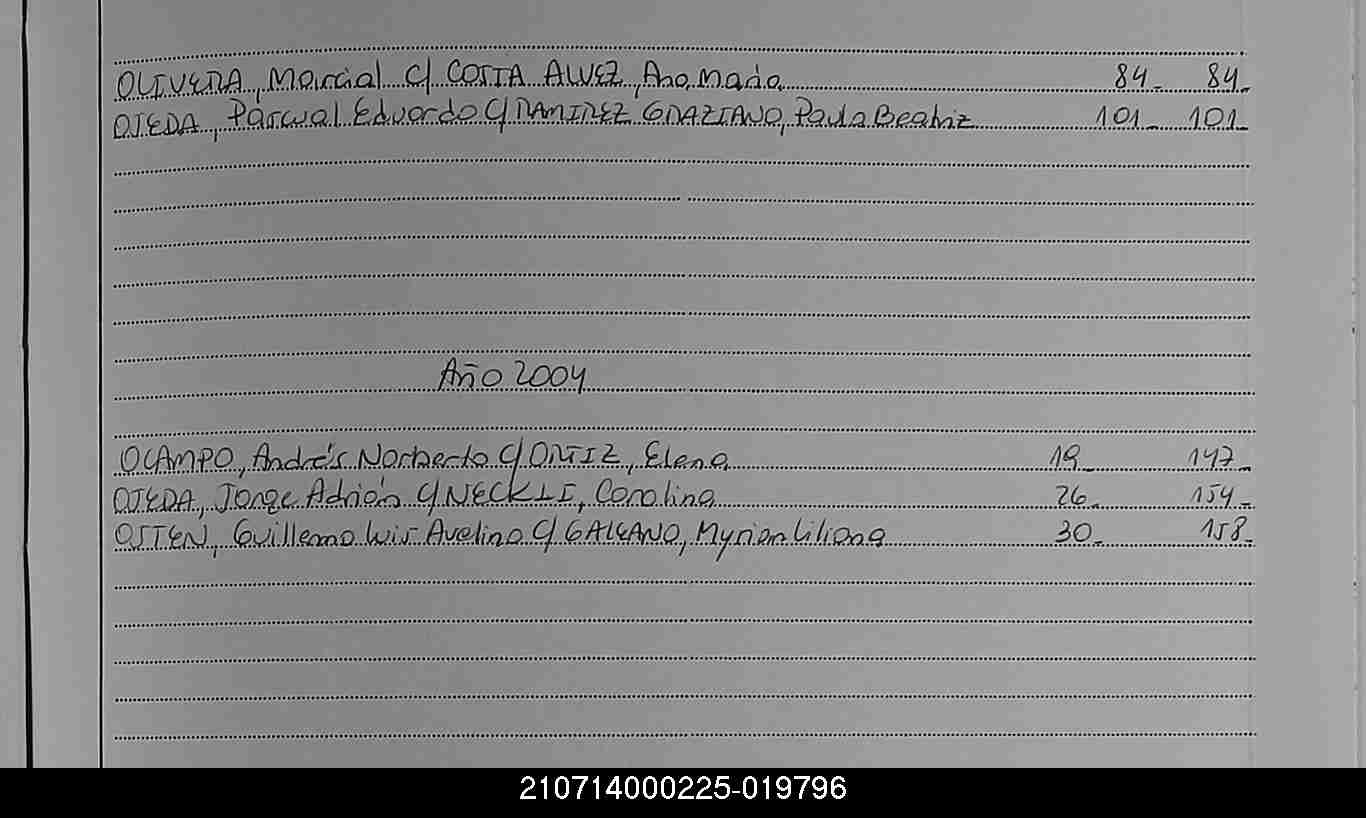 OLIVERA, Marcial c/ COSTA ALVEZ, Ana María 84_ 84_
OJEDA, Pascual Eduardo c/ RAMIREZ GRAZIANO, Paula Beatriz 101_ 101_
Año 2004
OCAMPO, Andrés Norberto c/ ORTIZ, Elena 19_ 147_
OJEDA, Jorge Adrián c/ NECKLI, Carolina 26_ 154_
OSTEN, Guillermo Luis Avelino c/ GALEANO, Myrian Liliana 30_ 158_
210714000225-019796